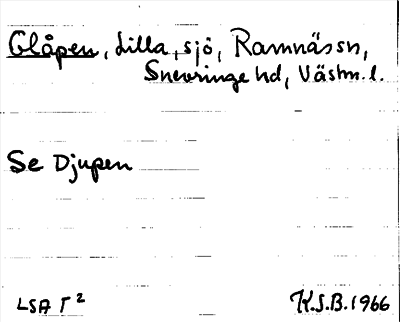 Glåpen, Lilla, sjö, Ramnäs sn,
Snevringe hd, Västm.l.
Se Djupen
LSA T²
K.S.B. 1966